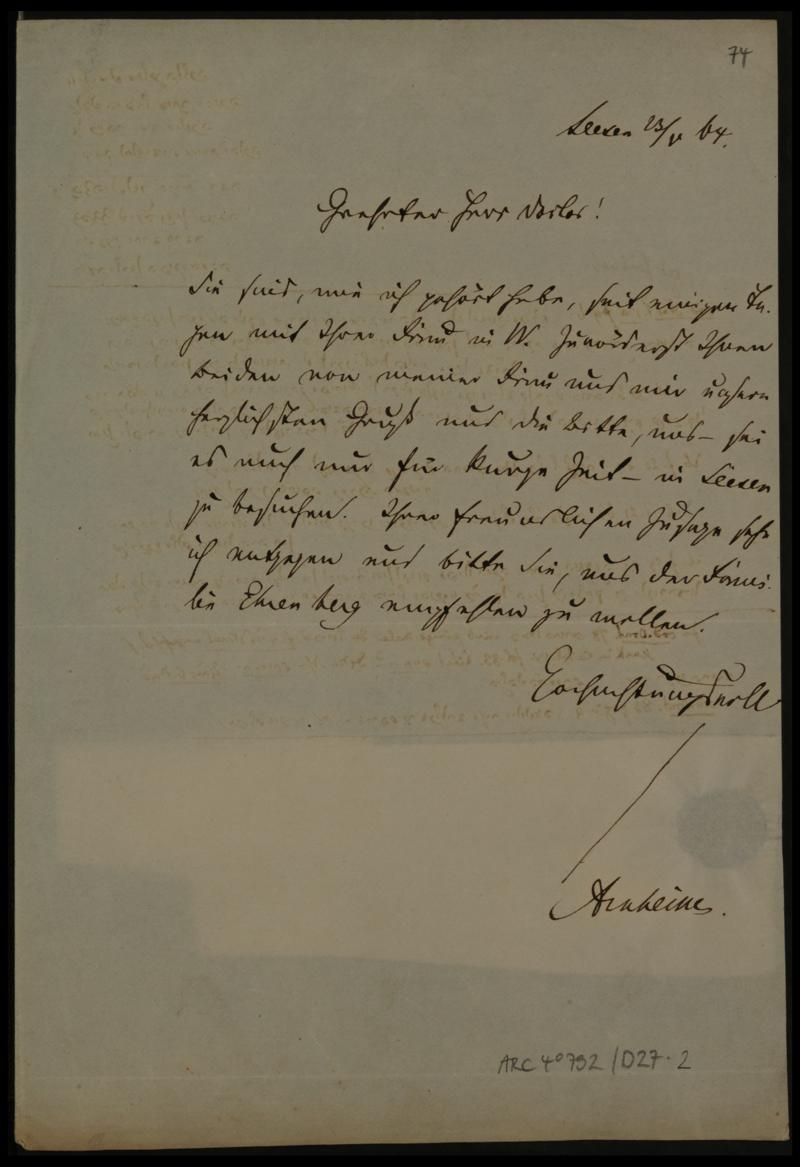 74
Seesen 23/V 64.
Geehrter Herr Doctor!
Sie sind, wie ich gehört habe, seit einigen Ta-
gen mit Ihrer Frau in W. Zuvörderst Ihnen
Beiden von meiner Frau und mir unsern
herzlichsten Gruß und die Bitte, uns – sei
es auch nur für kurze Zeit – in Seesen
zu besuchen. Ihrer freundlichen Zusage sehe
ich entgegen und bitte Sie, uns der Fami-
lie Ehrenberg empfehlen zu wollen.
Hochachtungsvoll
Arnheim.
ARC 4° 792/D27-2